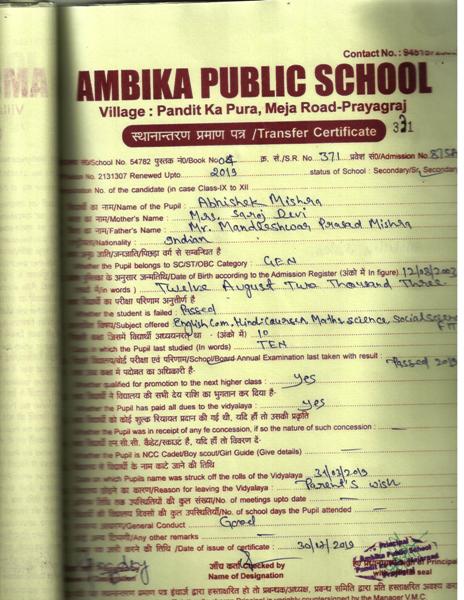 Contact No.:
AMBIKA PUBLIC SCHOOL
Village : Pandit Ka Pura, Meja Road-Prayagraj
स्थानान्तरण प्रमाण पत्र /Transfer Certificate 331
सं0/School No. 54782 पुस्तक नं0/Book No 04 क्र. सं./S.R. No. 371 प्रवेश सं0/Admission No. 875A
No. 2131307 Renewed Upto 2019 status of School : Secondary/Sr. Secondary
No. of the candidate (in case Class-IX to XII
का नाम/Name of the Pupil : Abhishek Mishra
का नाम/Mother's Name : Mrs. Saroj Devi
का नाम/Father's Name : Mr. Mandeshwar Prasad Mishra
/Nationality : Indian
जाति/जनजाति/पिछड़ा वर्ग से सम्बन्धित है
Whether the Pupil belongs to SC/ST/OBC Category : GEN
के अनुसार जन्मतिथि/Date of Birth according to the Admission Register (अंको में In figure) 12/08/2003
में/In words) Twelve August Two Thousand Three
का परीक्षा परिणाम अनुत्तीर्ण है
Whether the student is failed : Passed
विषय/Subject offered English Com, Hindi Course A, Maths, science, social science
FIT
कक्षा जिसमें विद्यार्थी अध्ययनरत था - (अंको में) 10
in which the Pupil last studied (In words) TEN
बोर्ड परीक्षा एवं परिणाम/School/Board Annual Examination last taken with result : Passed 2019
कक्षा में पदोन्नत का अधिकारी है-
Whether qualified for promotion to the next higher class : yes
ने विद्यालय की सभी देय राशि का भुगतान कर दिया है-
Whether the Pupil has paid all dues to the vidyalaya : yes
को कोई शुल्क रियायत प्रदान की गई थी, यदि हाँ तो उसकी प्रकृति
Whether the Pupil was in receipt of any fe concession, if so the nature of such concession : —
एन.सी.सी. कैडेट/स्काउट है, यदि हाँ तो विवरण दें-
Whether the Pupil is NCC Cadet/Boy scout/Girl Guide (Give details) —
विद्यार्थी के नाम काटे जाने की तिथि
on which Pupils name was struck off the rolls of the Vidyalaya 31/03/2019
छोड़ने का कारण/Reason for leaving the Vidyalaya : Parent's wish
तक उपस्थितियों की कुल संख्या/No. of meetings upto date —
विद्यालय दिवसों की कुल उपस्थितियाँ/No. of school days the Pupil attended —
आचरण/General Conduct Good
अन्य टिप्पणी/Any other remarks —
जारी करने की तिथि /Date of issue of certificate : 30/12/2019
जाँच कर्ता/Checked by
Name of Designation
Principal
Ambika Public School
seal
स्थानान्तरण प्रमाण पत्र इंचार्ज द्वारा हस्ताक्षरित हो तो प्रबन्धक/अध्यक्ष, प्रबन्ध समिति द्वारा प्रति हस्ताक्षरित
countersigned by the Manager V.M.C.